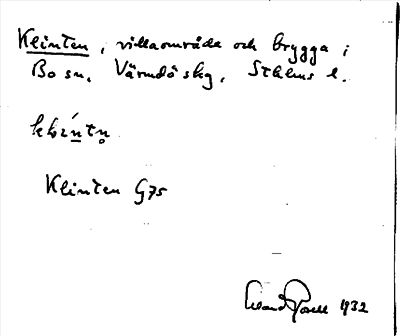 Klinten, villaområde och brygga i
Bo sn, Värmdö skg, Sthlms l.
Klinten G75
1932